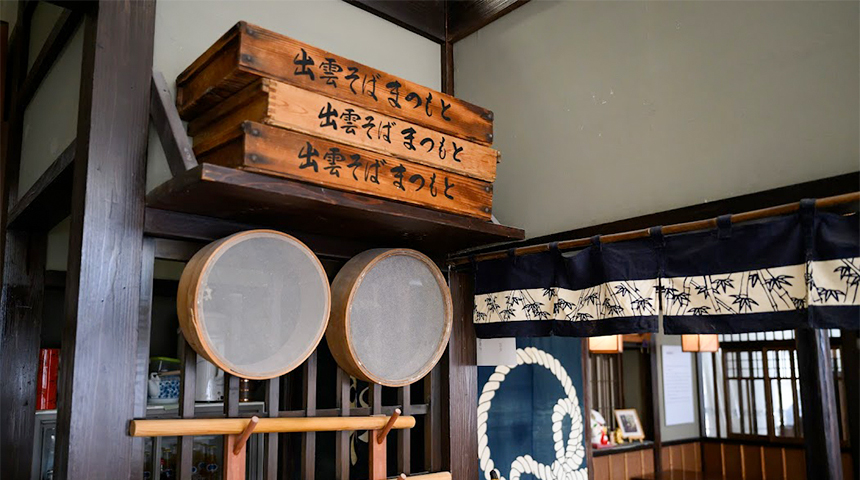 出雲そば まつもと
出雲そば まつもと
出雲そば まつもと